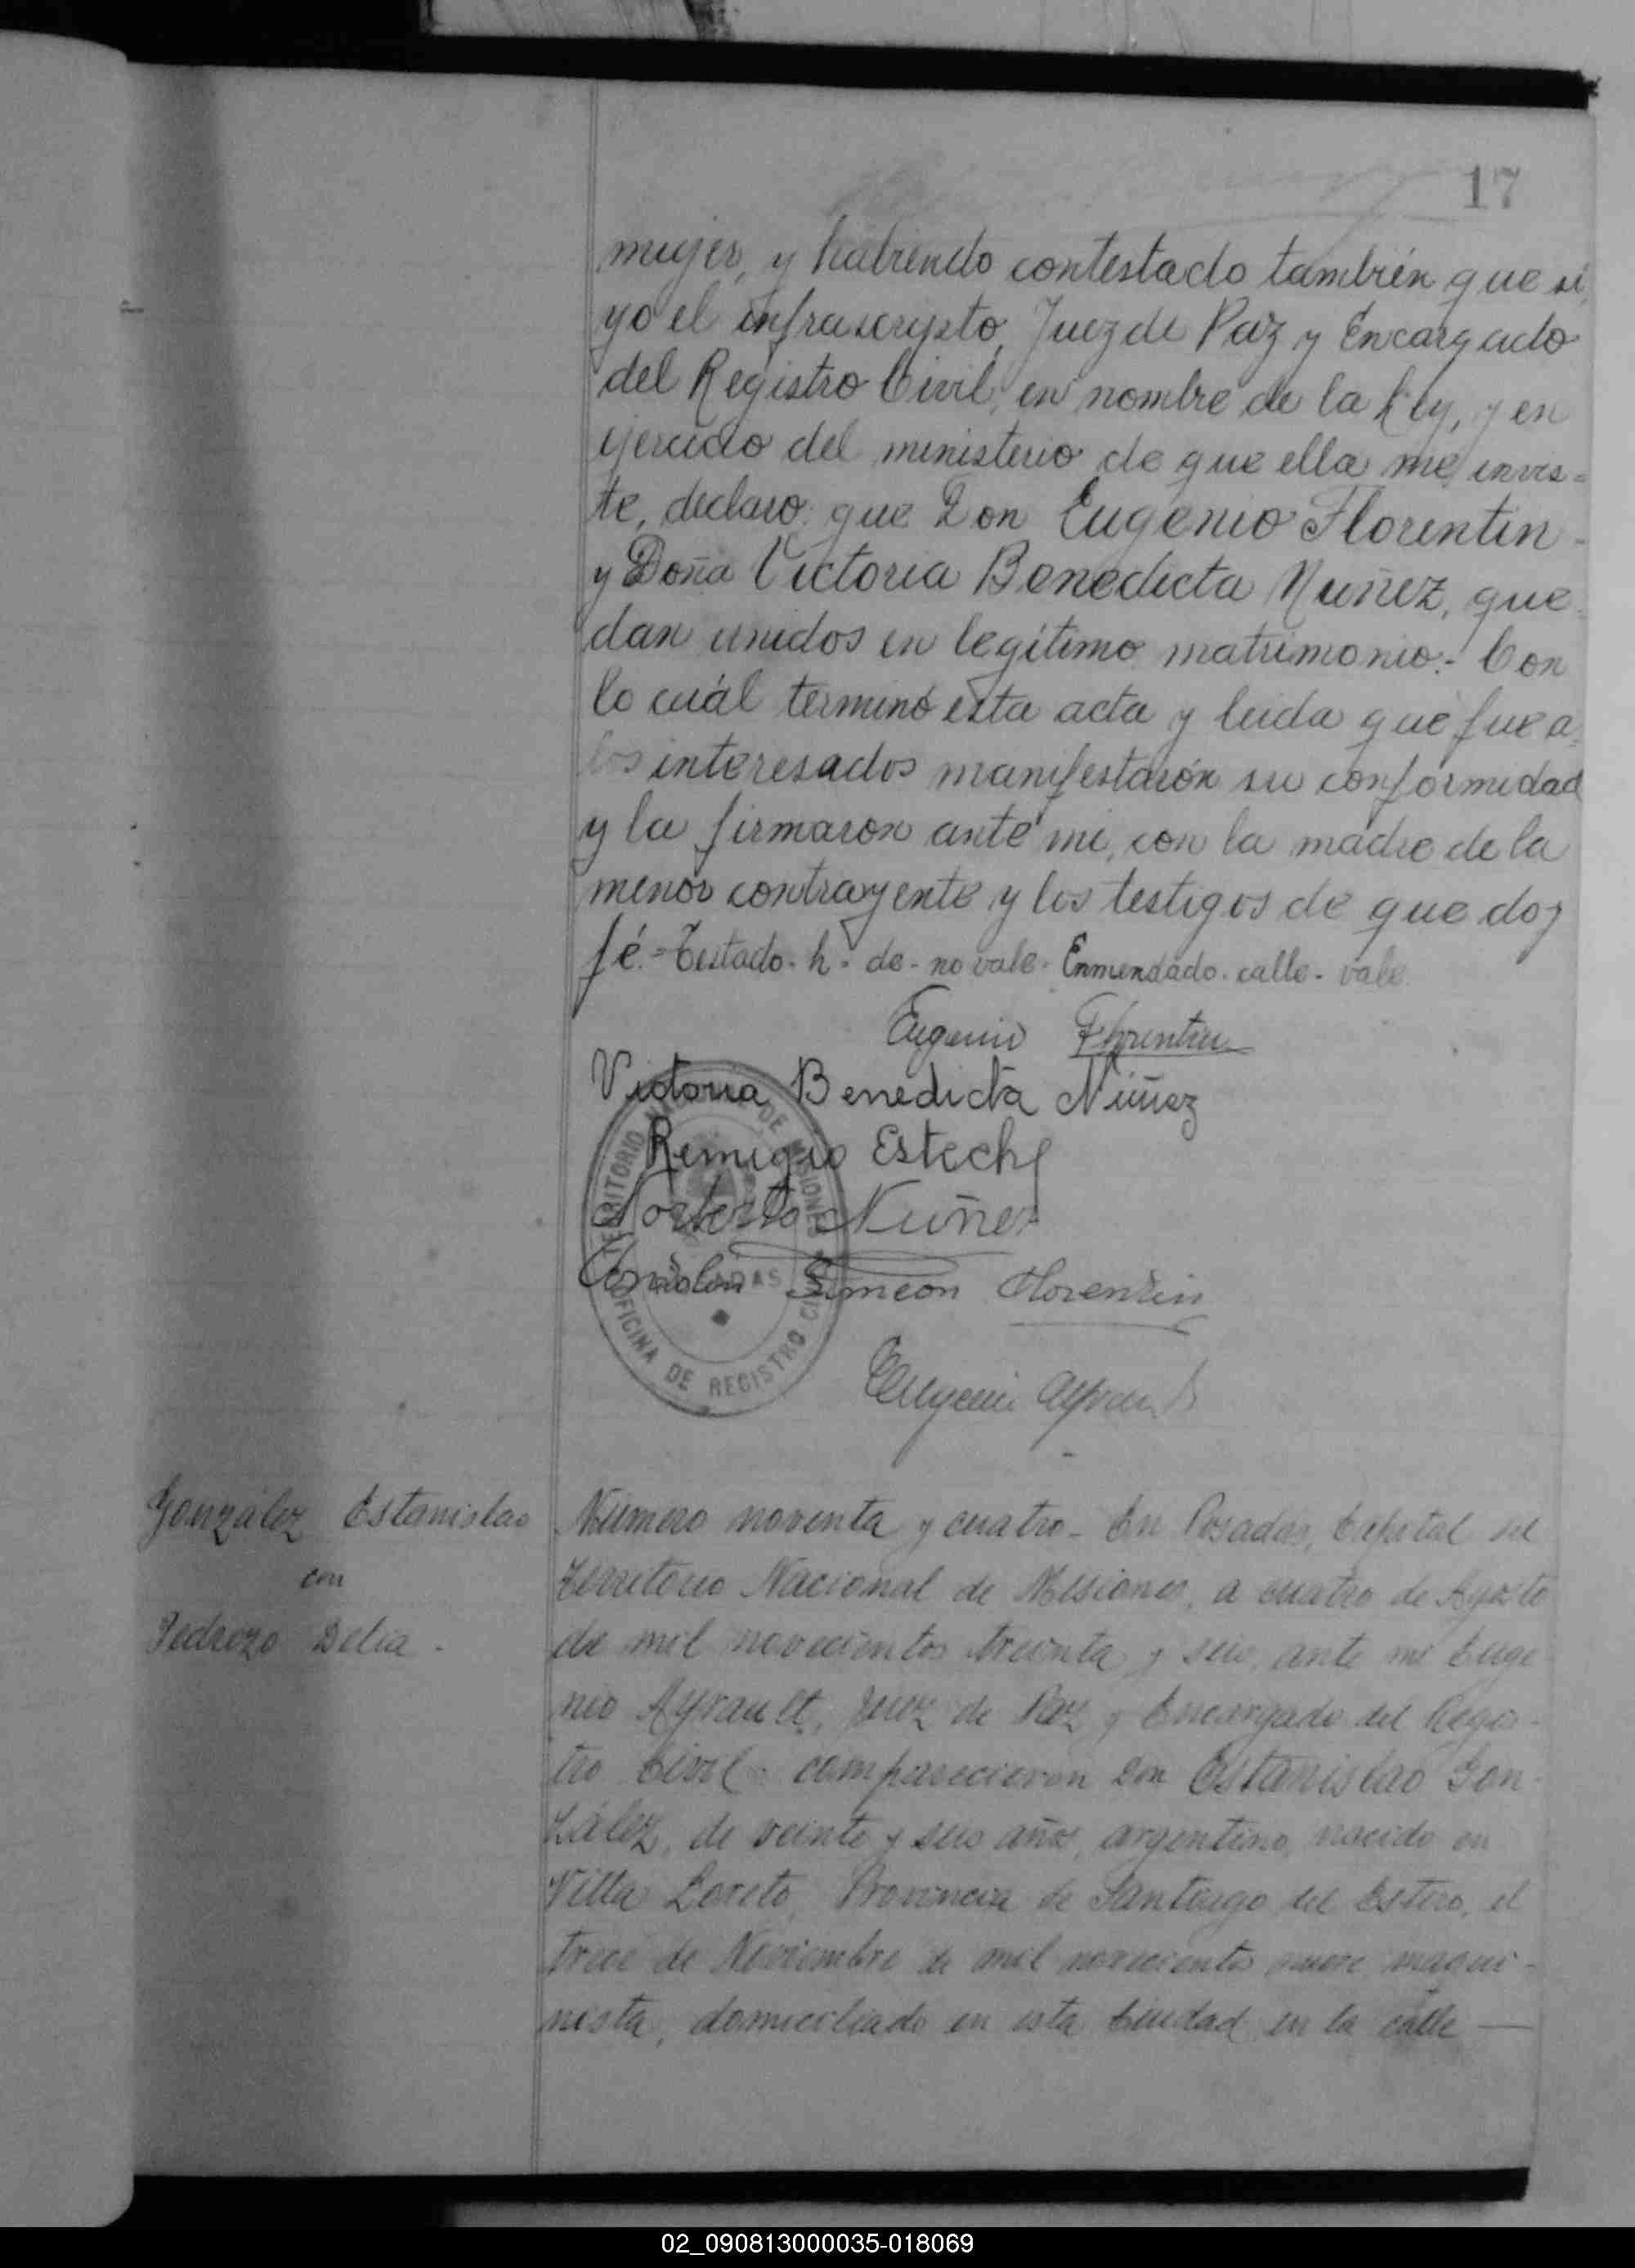 17
mujer, y habiendo contestado también que si,
yo el infrascripto, Juez de Paz y Encargado
del Registro Civil, en nombre de la Ley, y en
ejercicio del ministerio de que ella me invis=
te, declaro: que Don Eugenio Florentin
y Doña Victoria Benedicta Nuñez, que
dan unidos en legítimo matrimonio.- Con
lo cuál terminó esta acta y leida que fue a
los interesados manifestarón su conformidad
y la firmaron ante mi, con la madre de la
menor contrayente y los testigos de que doy
fé.= Testado- h- de- no vale- Enmendado- calle- vale
Eugenio Florentin
Victoria Benedicta Núñez
Remigio Esteche
Norberto Nuñez
Simeon Florentin
TERRITORIO NACIONAL DE MISIONES
POSADAS
OFICINA DE REGISTRO CIVIL
Eugenio Ayrault
González Estanislao
con
Pedrozo Delia -
Número noventa y cuatro- En Posadas, Capital del
Territorio Nacional de Misiones, a cuatro de Agosto
de mil novecientos treinta y seis, ante mi Euge
nio Ayrault, Juez de Paz y Encargado del Regis-
tro Civil comparecieron Don Estanislao Gon-
zález, de veinte y seis años, argentino, nacido en
Villa Loreto, Provincia de Santiago del Estero, el
trece de Noviembre de mil novecientos nueve, maqui-
nista, domiciliado en esta Ciudad en la calle —
02_090813000035-018069